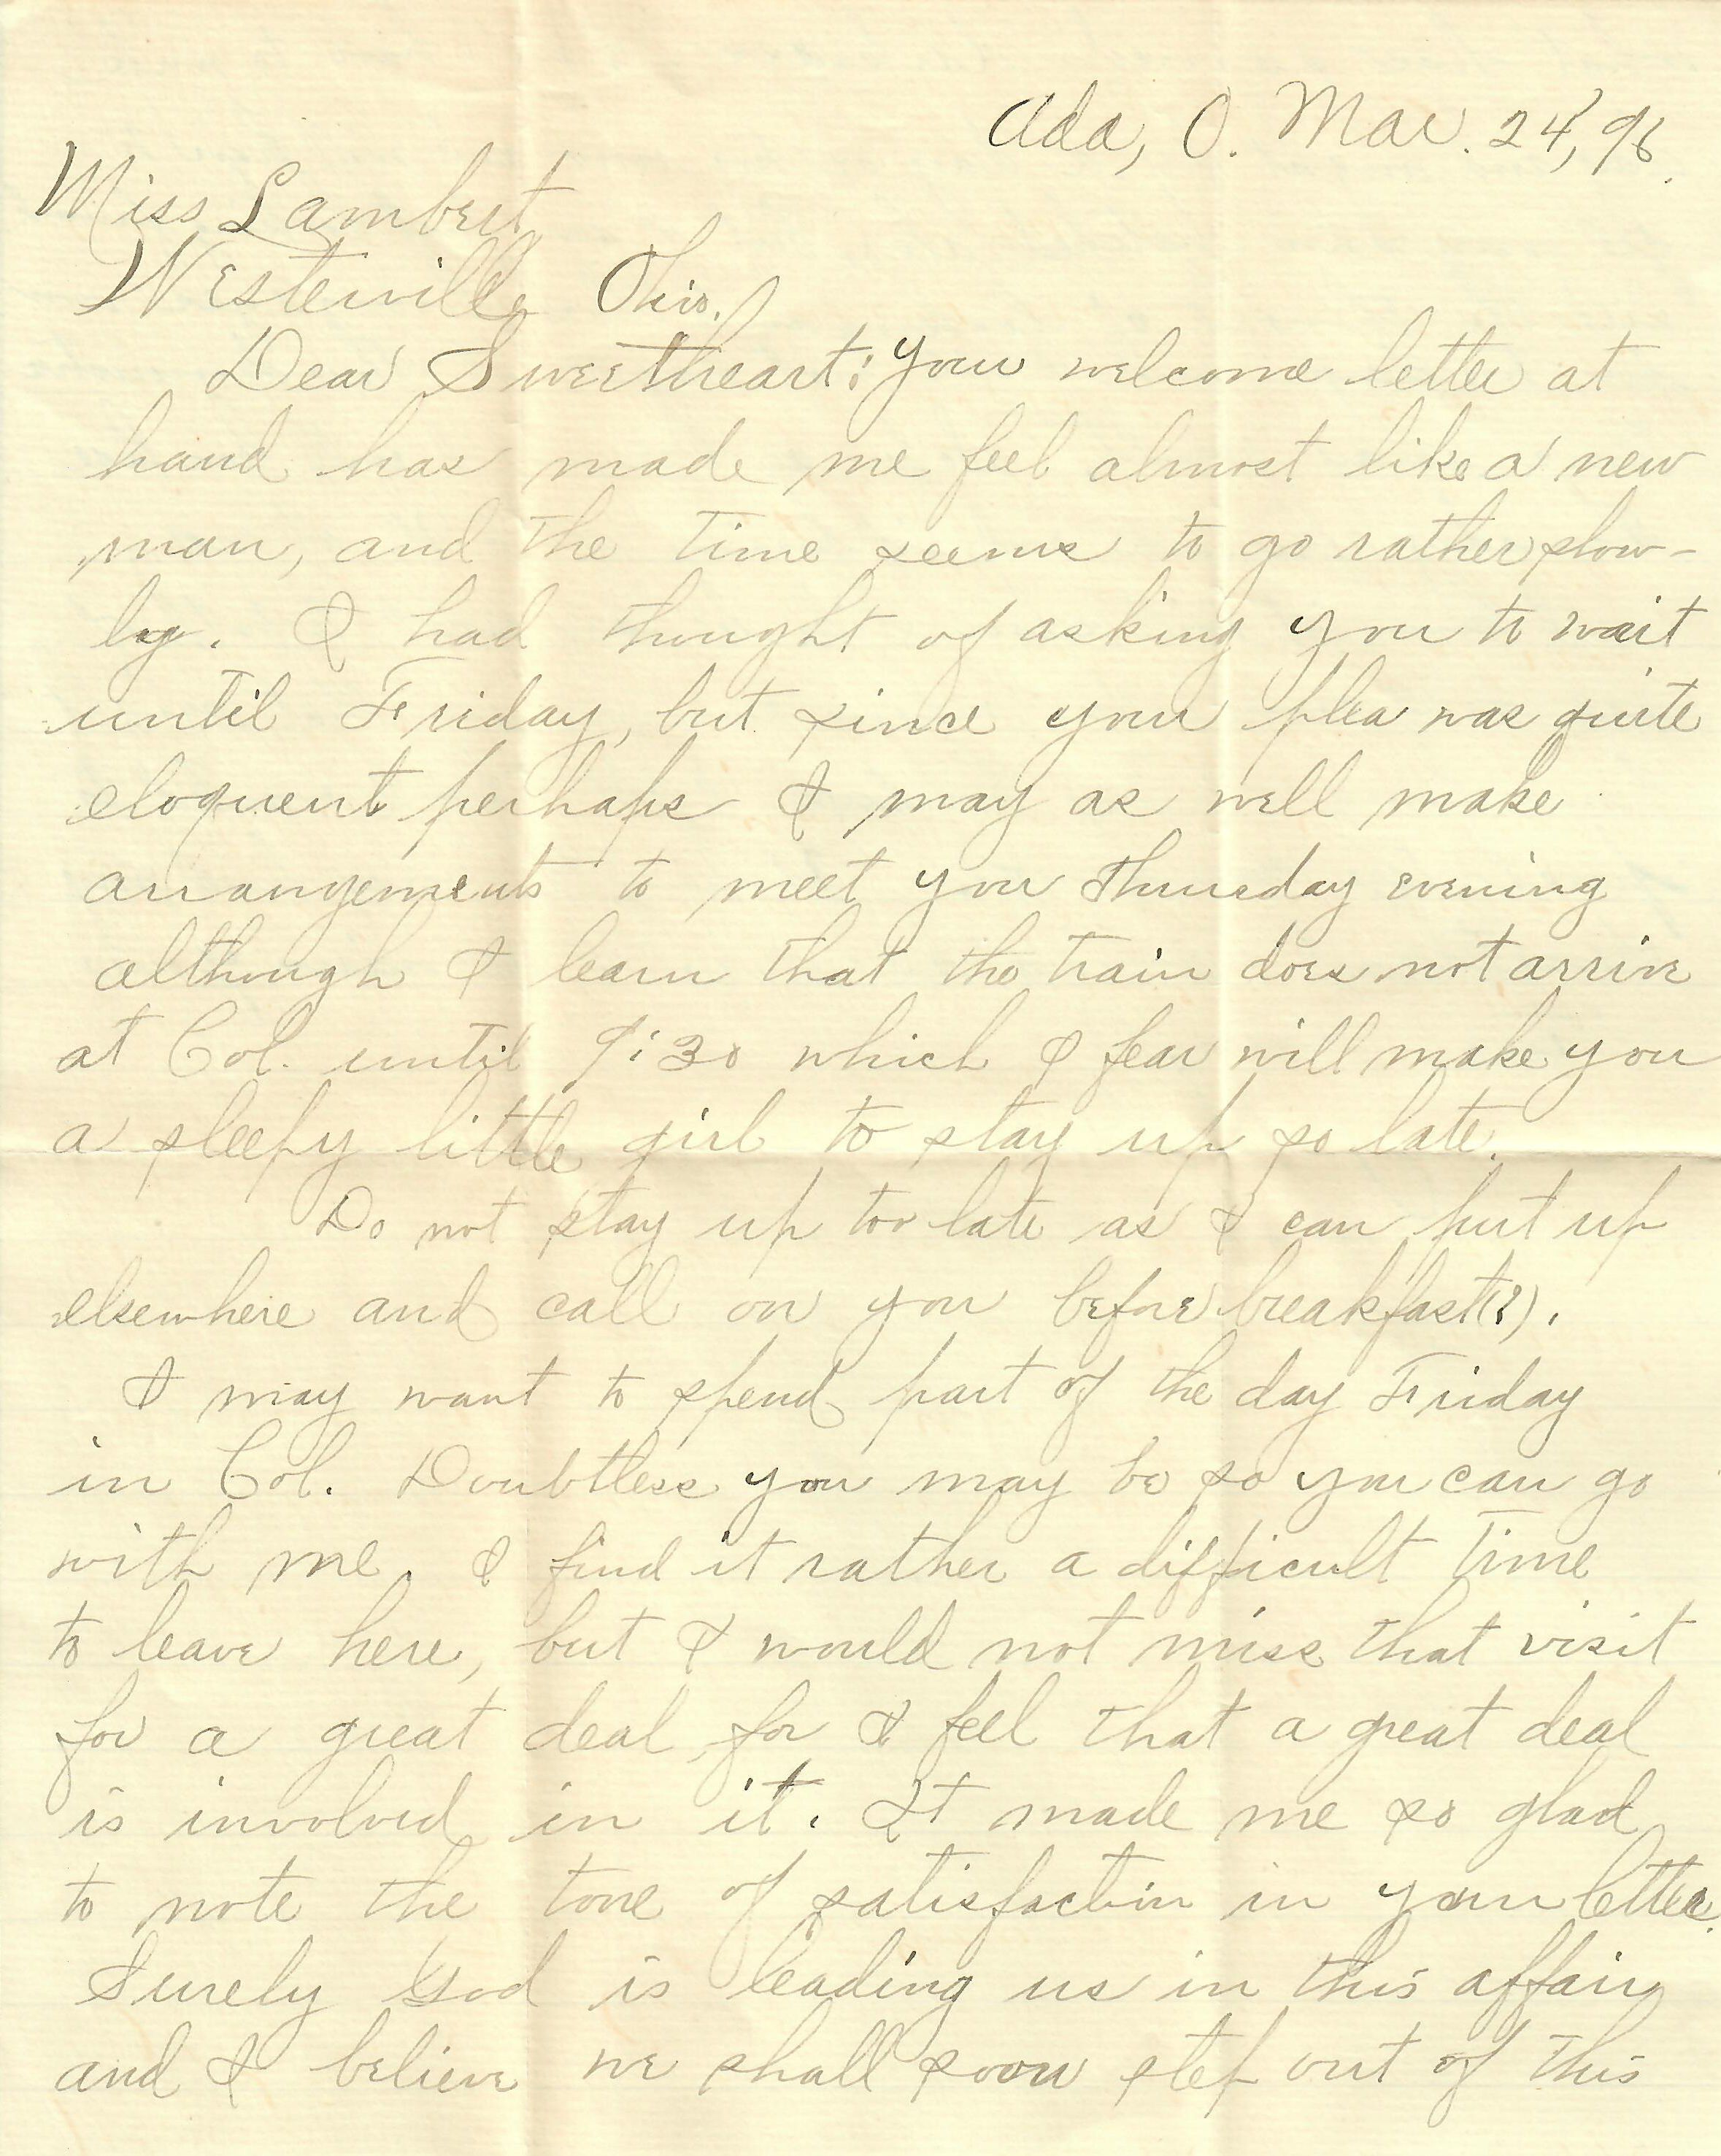 Ada, O. Mar. 24, 96.
Miss Lambert,
Westerville Ohio.
Dear Sweetheart: Your welcome letter at
hand has made me feel almost like a new
man, and the time seems to go rather slow-
ly. I had thought of asking you to wait
until Friday, but since your plea was quite
eloquent perhaps I may as well make
arrangements to meet you Thursday evening
although I learn that the train does not arrive
at Col. until 9:30 which I fear will make you
a sleepy little girl to stay up so late.
Do not stay up too late as I can put up
elsewhere and call on you before breakfast(?).
I may want to spend part of the day Friday
in Col. Doubtless you may be so you can go
with me. I find it rather a difficult time
to leave here, but I would not miss that visit
for a great deal, for I feel that a great deal
is involved in it. It made me so glad
to note the tone of satisfaction in your letter.
Surely God is leading us in this affair,
and I believe we shall soon step out of this